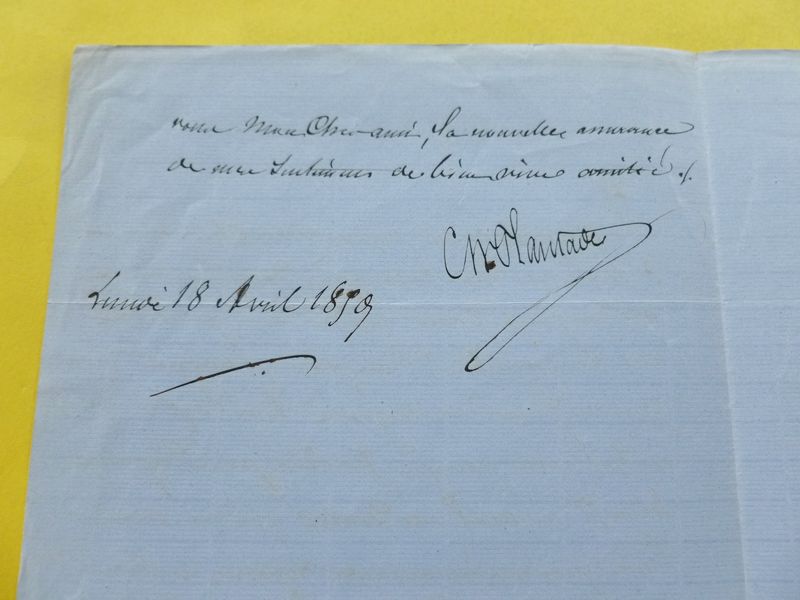 vous Mon Cher ami, la nouvelle assurance
de mes Sentimens de bien vive amitié ./.
Ch. Plantade
Lundi 18 Avril 1859